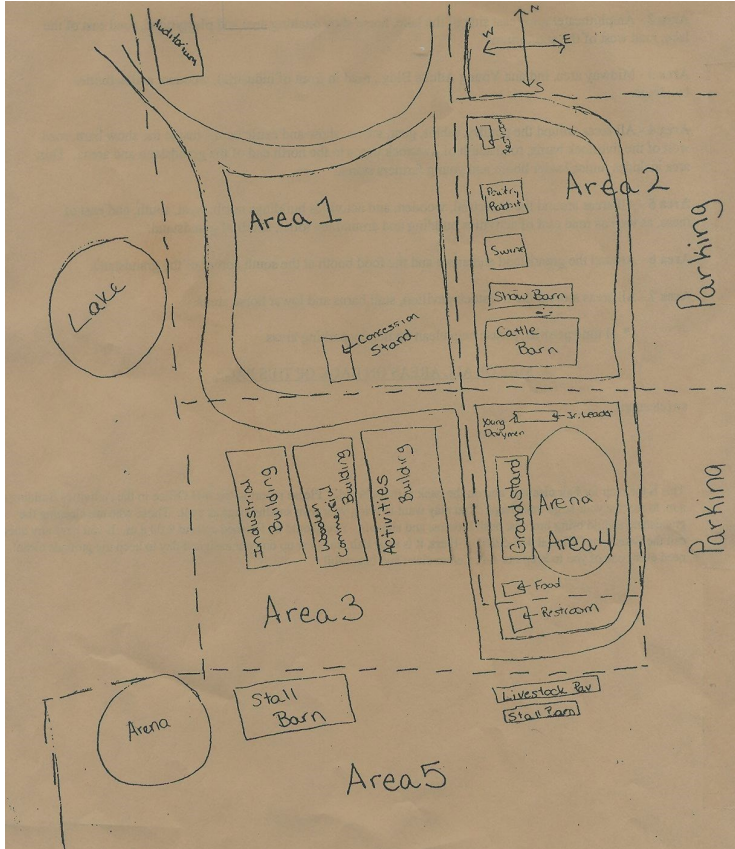 Auditorium
N
W
E
S
Area 1
Area 2
Poultry
Rabbit
Swine
Show Barn
Cattle
Barn
Parking
Lake
Concession
Stand
Young
Dairymen
Jr. Leader
Industrial
Building
Wooden
Commercial
Building
Activities
Building
Grandstand
Arena
Area 4
Parking
Food
Restroom
Area 3
Arena
Stall
Barn
Livestock Pav
Stall Barn
Area 5